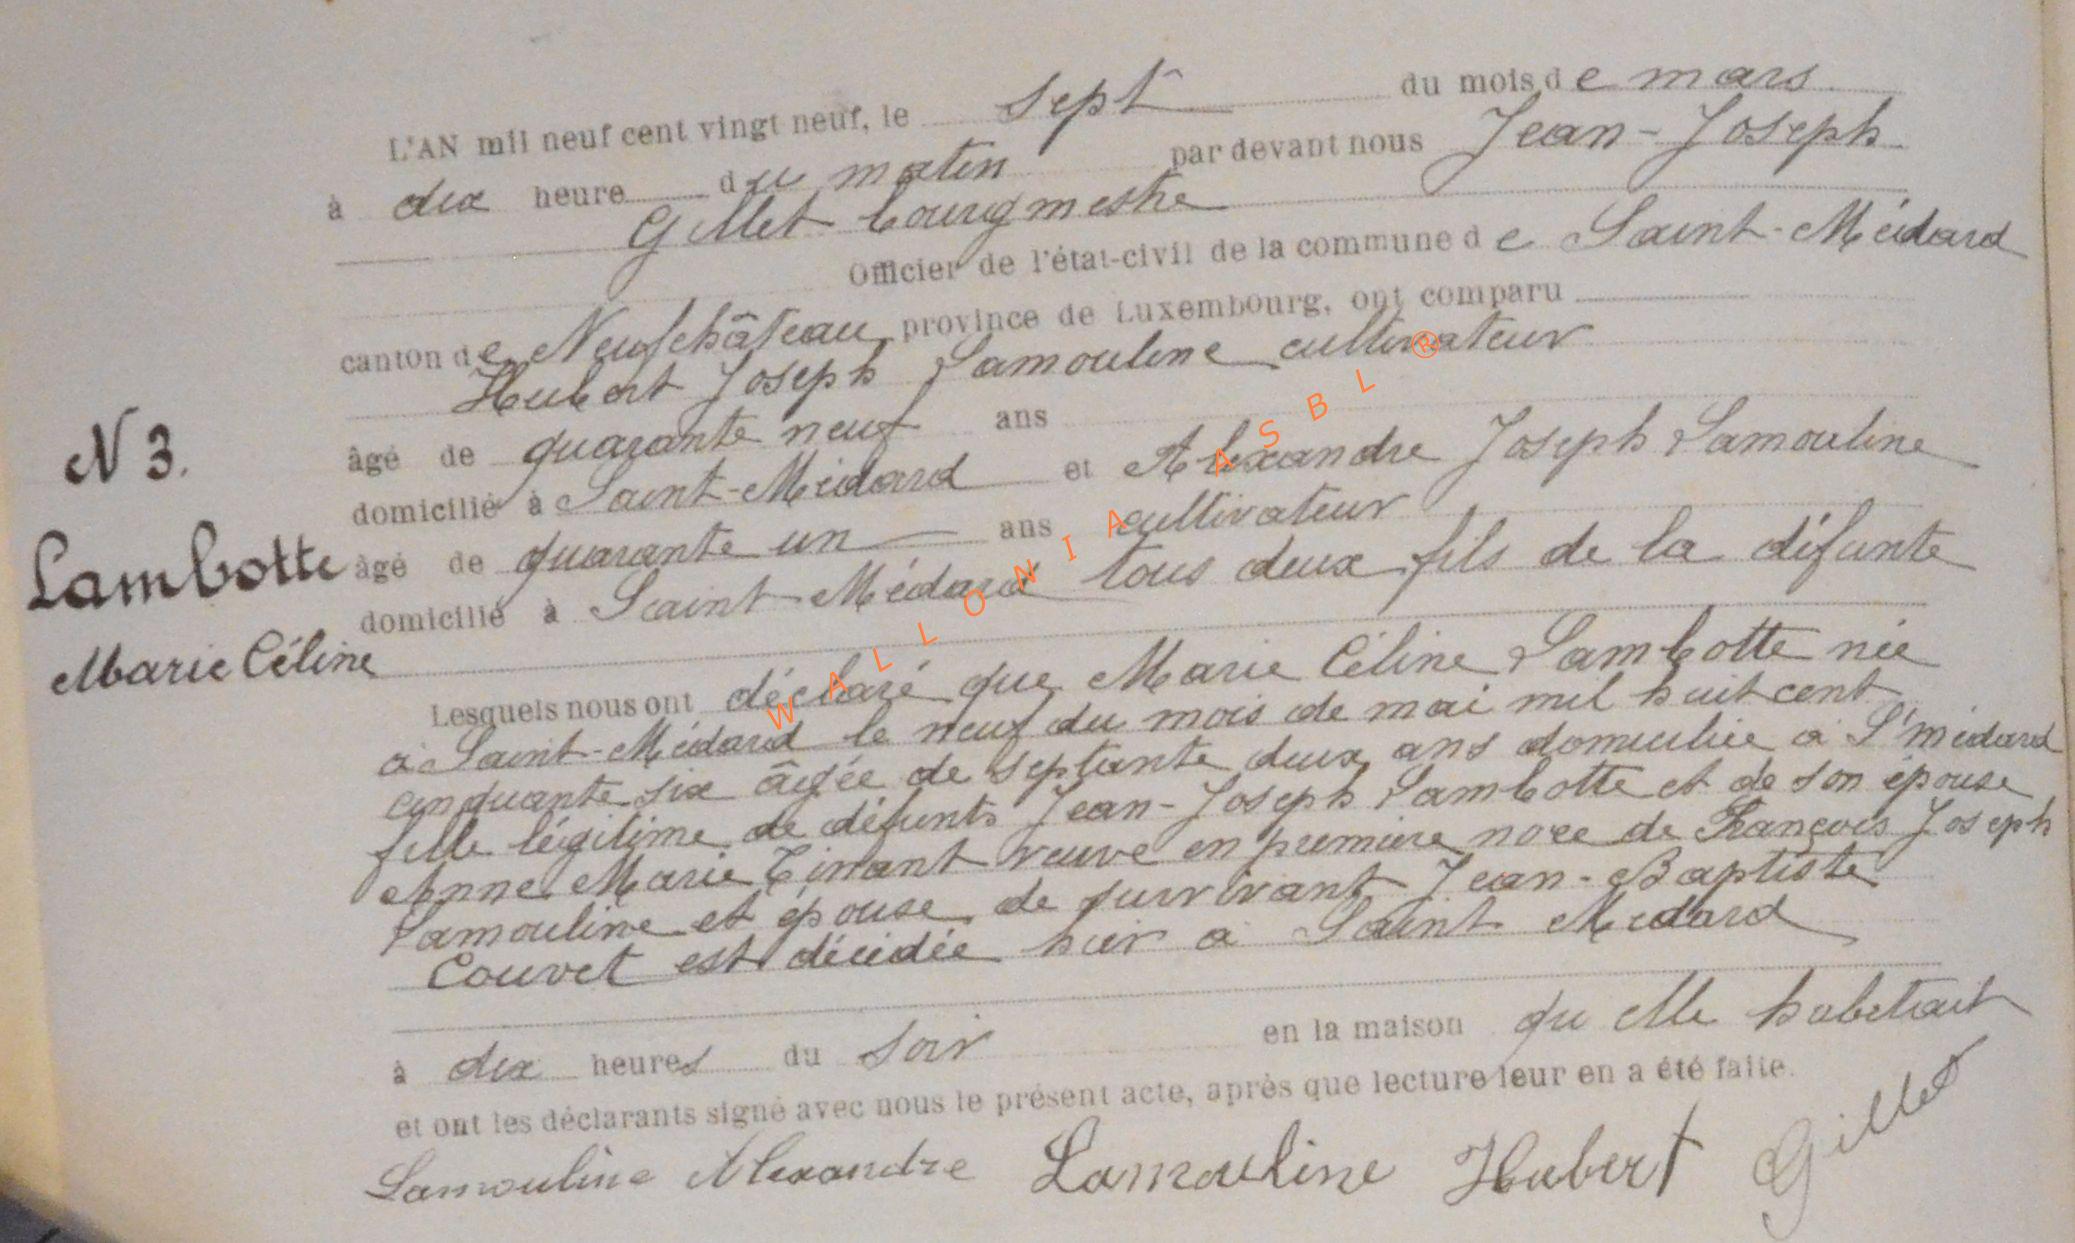 L'AN mil neuf cent vingt neuf, le sept du mois de mars
à dix heure du matin par devant nous Jean-Joseph
Gillet bourgmestre
Officier de l'état-civil de la commune de Saint-Médard
canton de Neufchâteau, province de Luxembourg, ont comparu
Hubert Joseph Lamouline cultivateur
âgé de quarante neuf ans
domicilié à Saint-Médard et Alexandre Joseph Lamouline
âgé de quarante un ans cultivateur
domicilié à Saint-Médard tous deux fils de la défunte
N 3.
Lambotte
Marie Céline
Lesquels nous ont déclaré que Marie Céline Lambotte née
à Saint-Médard le neuf du mois de mai mil huit cent
cinquante six âgée de septante deux ans domiciliée à St médard
fille légitime de défunts Jean-Joseph Lambotte et de son épouse
Anne Marie Tinant veuve en première noce de François Joseph
Lamouline et épouse de survivant Jean-Baptiste
Couvet est décédée hier à Saint Médard
à dix heures du soir en la maison qu elle habitait
et ont les déclarants signé avec nous le présent acte, après que lecture leur en a été faite.
Lamouline Alexandre Lamouline Hubert Gillet
WALLONIA ASBL ®